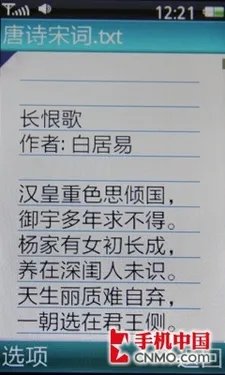 12:21
唐诗宋词.txt
长恨歌
作者: 白居易
汉皇重色思倾国，
御宇多年求不得。
杨家有女初长成，
养在深闺人未识。
天生丽质难自弃，
一朝选在君王侧。
选项
返回
手机中国
CNMO.com